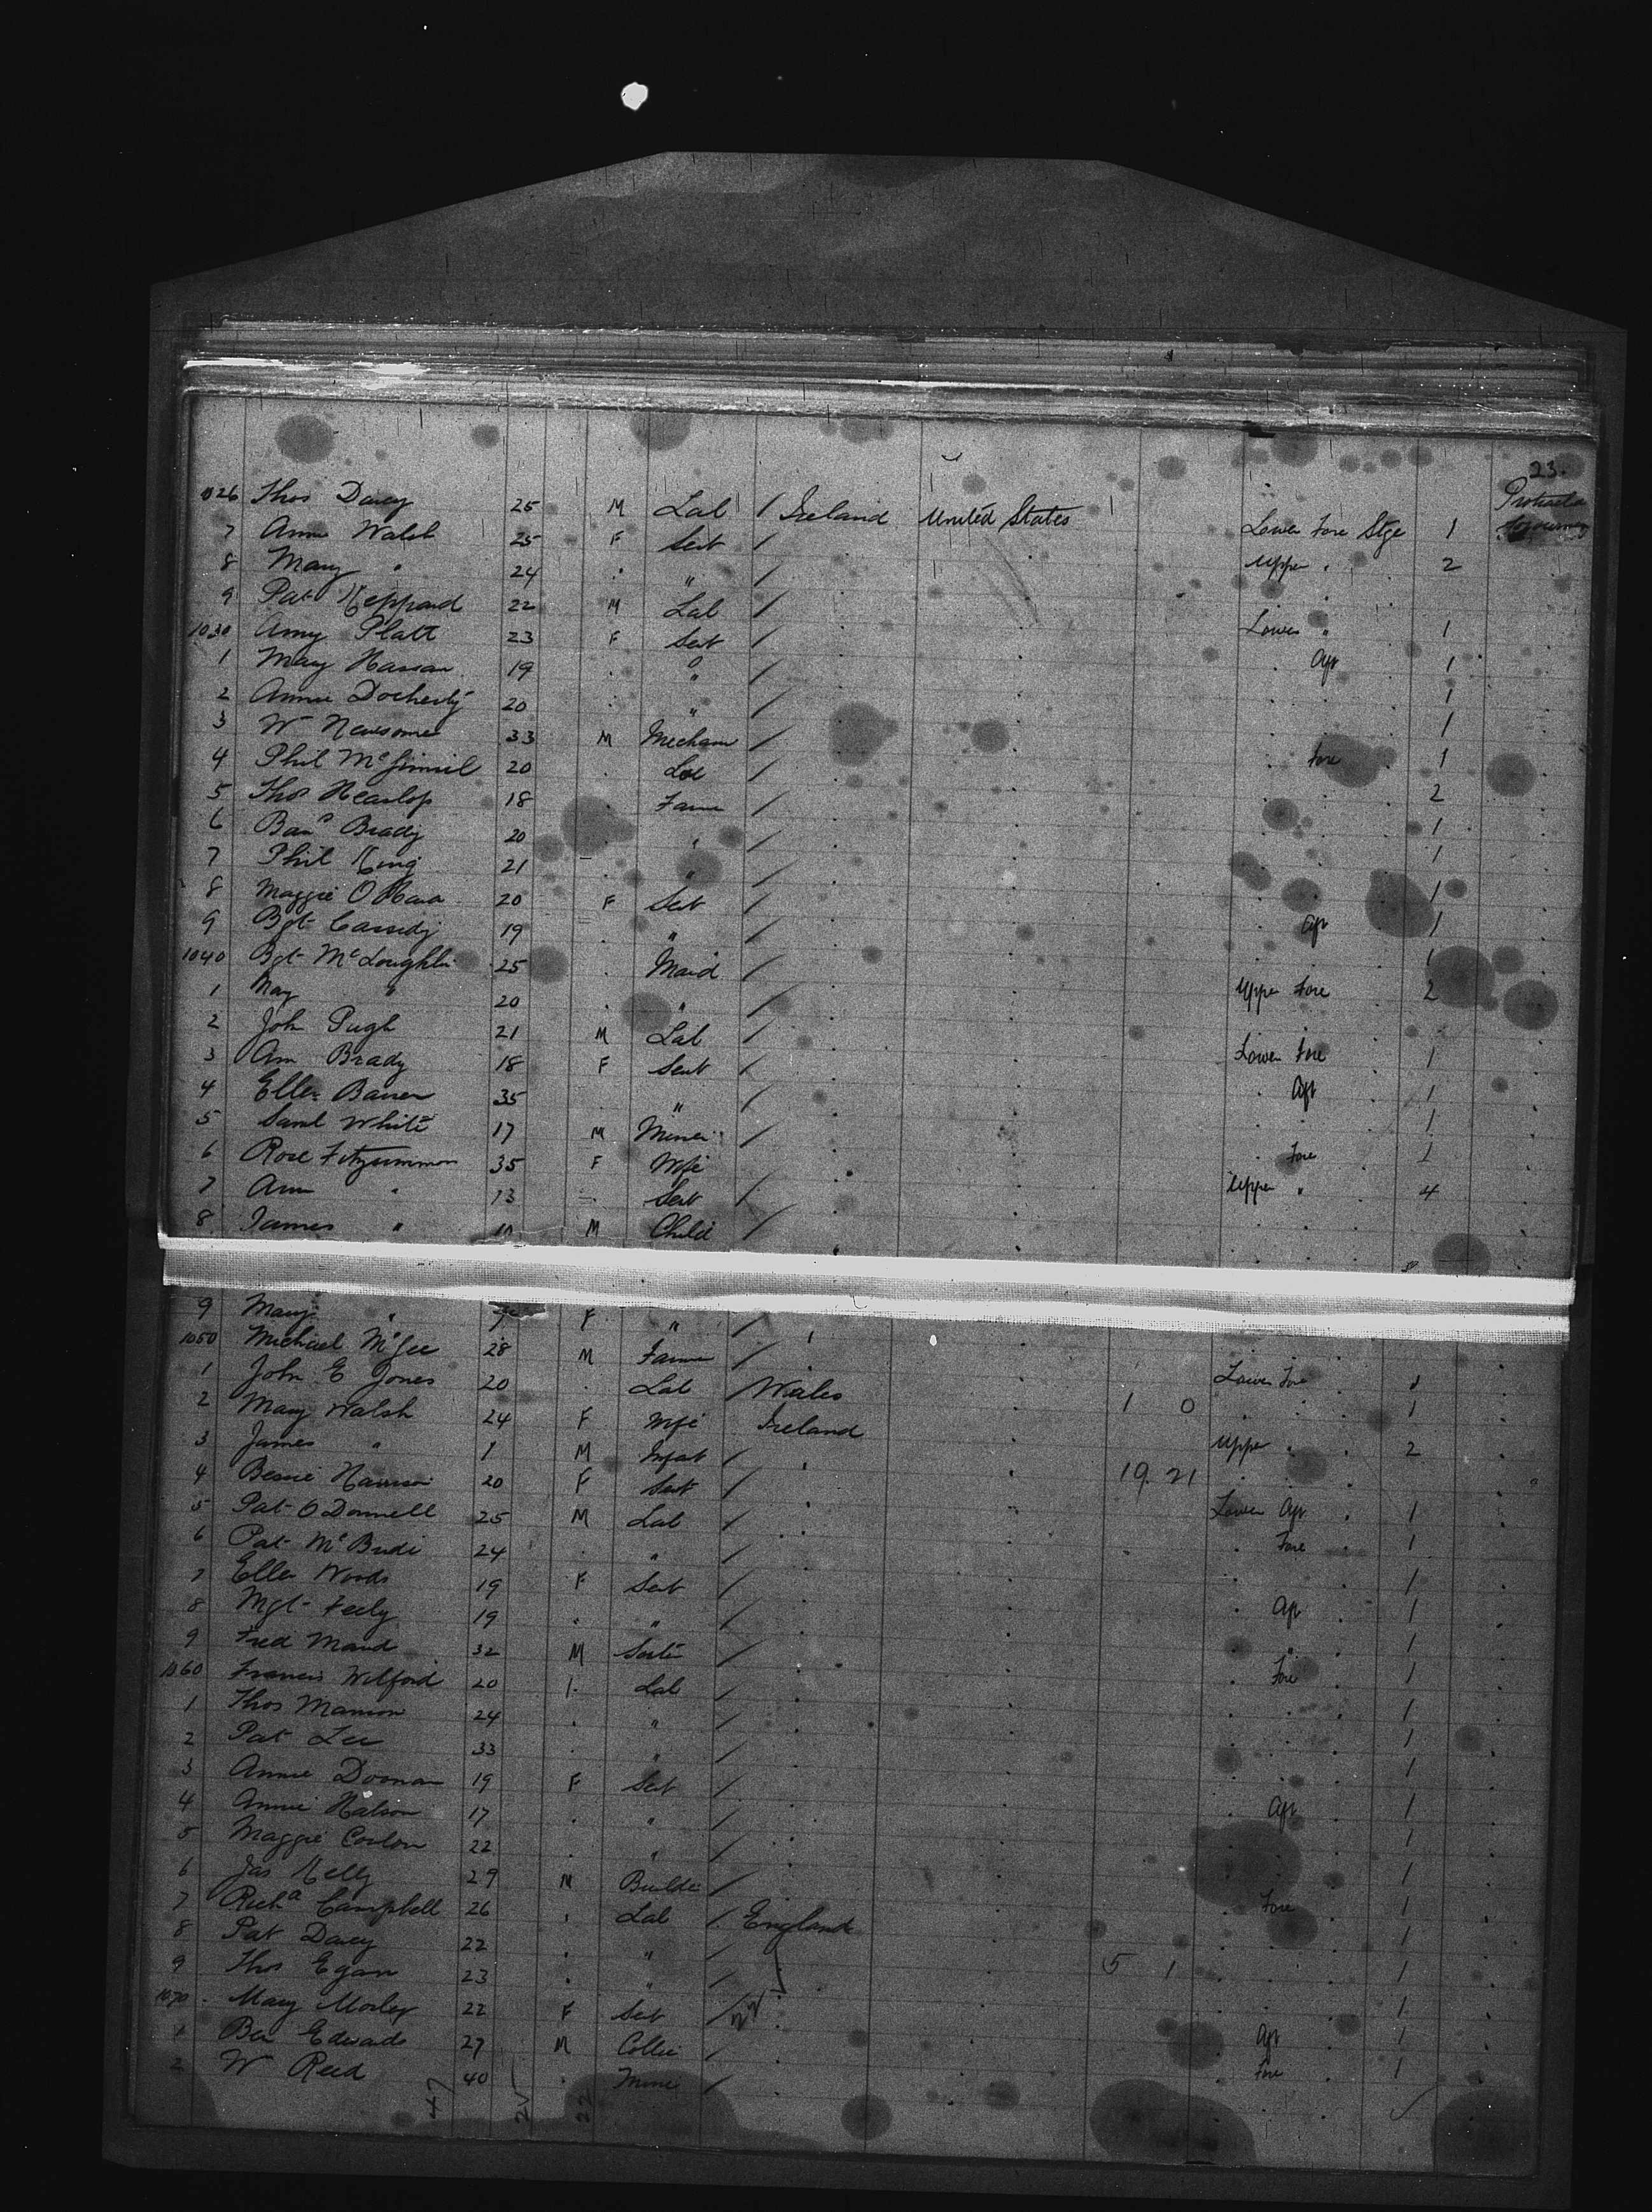 23.
Protracted Sojourning
1026 Thos Davey 25 M Lab / Ireland United States Lower Fore Stge 1
7 Anne Walsh 25 F Sevt / Upper . 2
8 Mary " 24 . " /
9 Pat Keppard 22 M Lab / Lower " 1
1030 Amy Platt 23 F Sevt / . Aft 1
1 Mary Hassan 19 . " / 1
2 Annie Docherty 20 . " / 1
3 Wm Newsome 33 M Mechan / . Fore 1
4 Phil McGinnil 20 . Lab / 2
5 Thos Heaslop 18 . Farmer / 1
6 Barnd Brady 20 " / 1
7 Phil King 21 " / 1
8 Maggie O'Hara 20 F Sevt / . Aft 1
9 Bgt Cassidy 19 . " / 1
1040 Bgt McLoughlin 25 . Maid / Upper Fore 2
1 May " 20 . " /
2 John Pugh 21 M Lab / Lower Fore 1
3 Ann Brady 18 F Sevt / . Aft 1
4 Ellen 35 . " / 1
5 Saml White 17 M Miner / . Fore 1
6 Rose Fitzsimmon 35 F Wife Upper " 4
7 Ann " 13 Sevt /
8 James " M Child /
9 Mary " 7 F " /
1050 Michael McGee 28 M Farmer / Lower Fore 1
1 John E Jones 20 . Lab / Wales 1 0 1
2 Mary Walsh 24 F Wife Ireland Upper " 2
3 James " 1 M Infant / 19. 21
4 Bessie Harrison 20 F Sevt / Lower Aft 1
5 Pat O'Donnell 25 M Lab / . Fore 1
6 Pat McBride 24 . " / 1
7 Ellen Woods 19 F Sevt / . Aft 1
8 Mgt Feely 19 . " / 1
9 Fred Maud 32 M / . Fore 1
1060 Francis Wilford 20 . Lab / 1
1 Thos Mannion 24 . " / 1
2 Pat Lee 33 . " / 1
3 Annie Doonan 19 F Sevt / . Aft 1
4 Annie 17 . " / 1
5 Maggie Conlon 22 . " / 1
6 Jas Kelly 29 M Builder / . Fore 1
7 Richd Campbell 26 . Lab / England 1
8 Pat Davey 22 . " / 5 1 1
9 Thos Egan 23 . " / 1
1070 Mary Morley 22 F Sevt / . Aft 1
1 Ben Edwards 27 M Collier / . Fore 1
2 W Reed 40 . Miner /
47 22